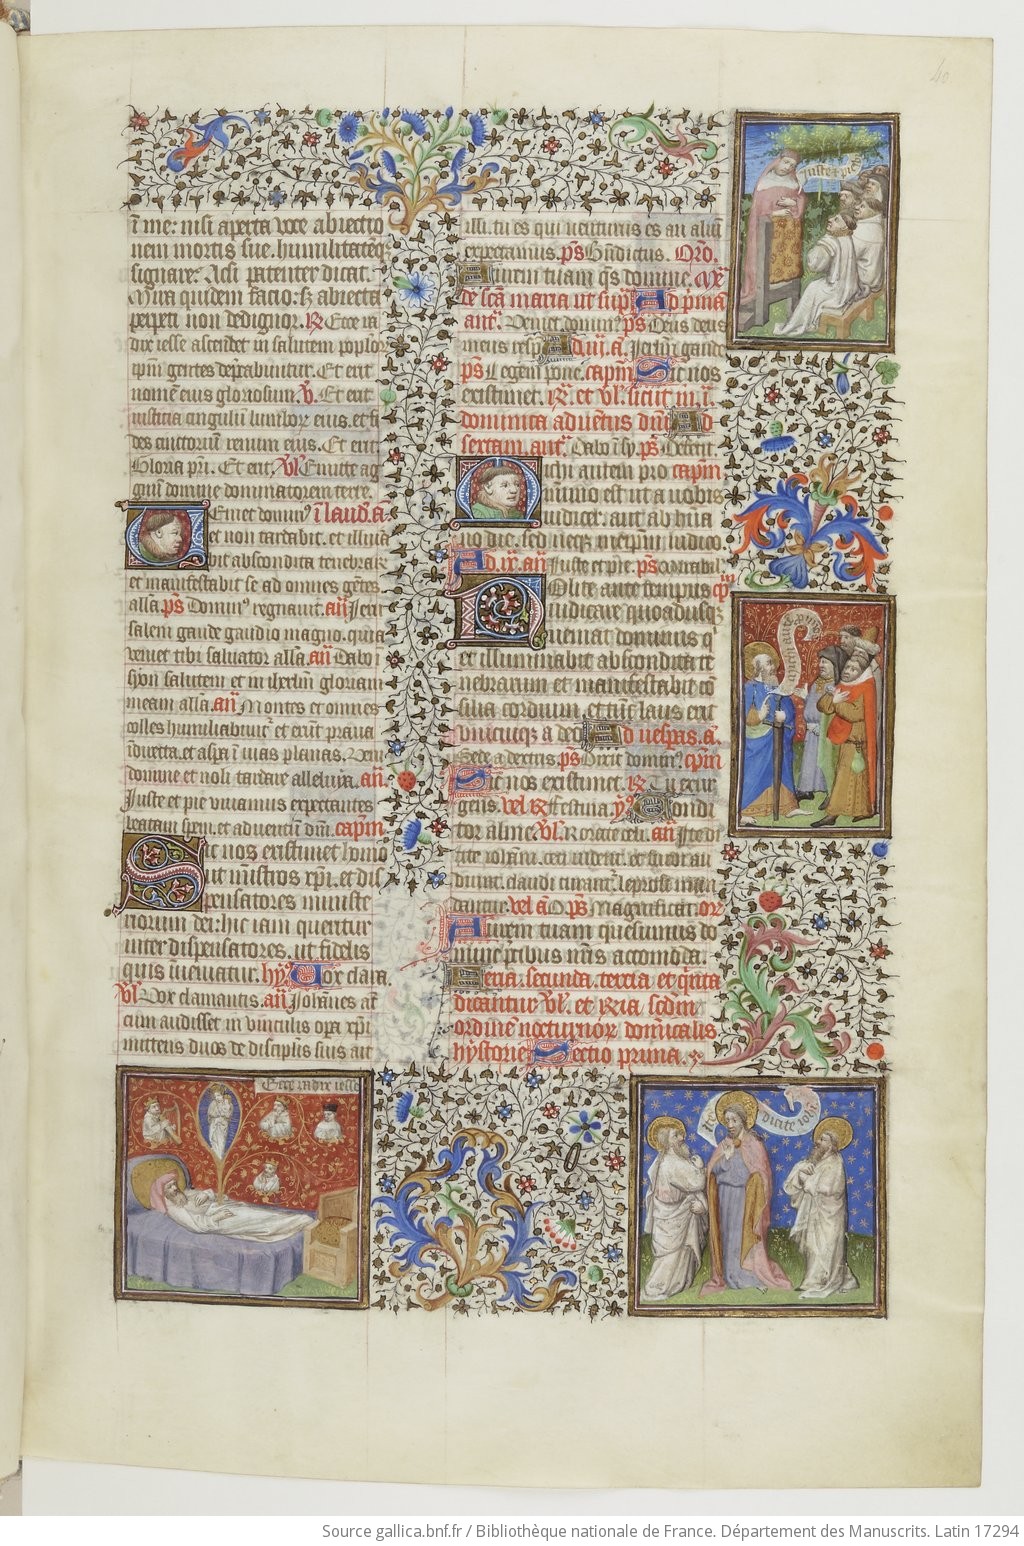 40
ī me: nisi aperta voce abiectio
nem mortis sue. humilitatem
signare: Acsi patenter dicat.
Mira quidem facio: sz abiecta
perpeti non dedignor. R Ecce ra
dix iesse ascendet in salutem poplor
ipm gentes deprecabuntur. Et erit
nomē eius gloriosum. v. Et erit
iusticia cinguluȝ lumborȝ eius. et fi
des cinctoriū renum eius. Et erit
Gloria pri. Et erit. vl Emitte ag
num domine dominatorem terre.
Veniet domin9 ī laud. a.
et non tardabit. et illuīa
bit abscondita tenebrarȝ
et manifestabit se ad omnes gētes
alla. ps Domin9 regnauit. añ Jeru
salem gaude gaudio magno. quia
veniet tibi saluator alla. añ Dabo ī
syon salutem et in ihrlm gloriam
meam alla. añ Montes et omnes
colles humiliabunt2 et erūt praua
ī directa. et aspa ī uias planas. Veni
domine et noli tardare alleluya. añ.
Juste et pie viuamus expectantes
beatam spem. et aduentū dñi. capm
Sic nos existimet homo
ut mīstros xpi. et dis
pensatores ministe
riorum dei: hic iam queritur
inter dispensatores. ut fidelis
quis īueniatur. hy9 Vox clara.
vl Vox clamantis. añ Johānes aūt
cum audisset in vinculis opa xpi:
mittens duos de discipulis suis ait
illi. tu es qui venturus es an aliū
expectamus. ps Bñdictus. Oro.
Aurem tuam qs domine. ȝ
de scā maria ut supa Ad pmā
antᵃ. Veniet domin9 ps Deus deus
meus resp Ad iii. a. Jerlm gaude
ps Legem pone. capm Sic nos
existimet. R. et vl. sicut in .i.
dominica aduentus dñi Ad
sextam. antᵃ Dabo ī sy. ps Defecit.
Michi autem pro capm
minimo est ut a uobis
iudicer: aut ab huma
no die. sed neqȝ meipm iudico
Ad ix. añ Juste et pie. ps Mirabil. cpm
Nolite ante tempus
iudicare quoadusqȝ
veniat dominus q
et illuminabit abscondita te
nebrarum et manifestabit cō
silia cordium. et tūc laus erit
unicuiqȝ a deo Ad vespas. a.
Sede a dextris. ps Dixit domin9. cpm
Sic nos existimet. R Tu exur
gens. vel R Festina. y9 Condi
tor alme. vl. Rorate celi. añ Ite di
cite iohāni. ceci uident. et surdi au
diunt. claudi curant2. leprosi mun
dantur. vel a O ps Magnificat. oro
Aurem tuam quesumus do
mine precibus nrīs accomoda.
Feria. secunda. tercia et qrta
dicantur vl. et Rria scdm
ordinē nocturnorȝ dominicalis
hystorie Lectio prima.
Juste et pie
Ecce radix iesse
Ite dicite iohi
Source gallica.bnf.fr / Bibliothèque nationale de France. Département des Manuscrits. Latin 17294